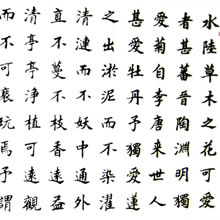 水陸草木之花可愛
者甚蕃晉陶淵明獨
愛菊自李唐來世人
甚愛牡丹予獨愛蓮
之出淤泥而不染濯
清漣而不妖中通外
直不蔓不枝香遠益
清亭亭淨植可遠觀
而不可褻玩焉予謂